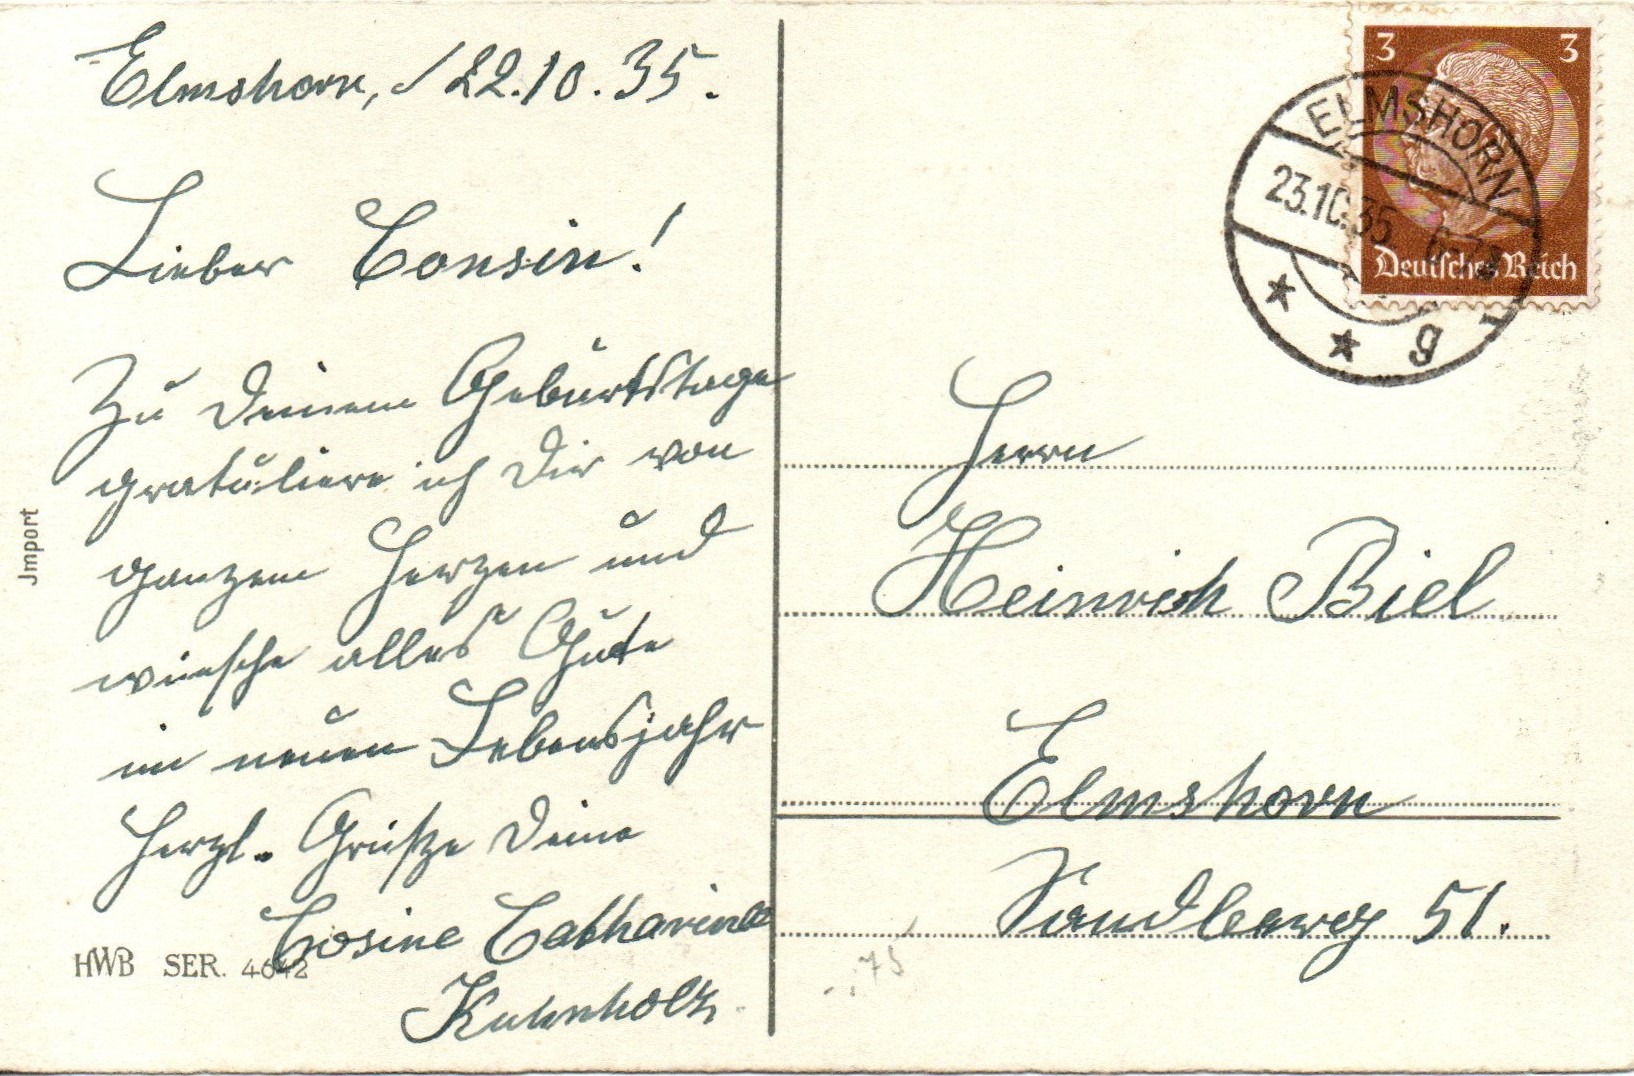 Elmshorn, d 22.10.35.
Lieber Cousin!
Zu Deinem Geburtstage
gratuliere ich Dir von
ganzem Herzen und
wünsche alles Gute
im neuen Lebensjahr
Herzl. Grüße Deine
Cosine Catharina
Kuhnholz.
HWB SER. 4642
Jmport
3 3
Deutsches Reich
ELMSHORN
23.10.35 6-7
* * g
Herrn
Heinrich Biel
Elmshorn
51.
75